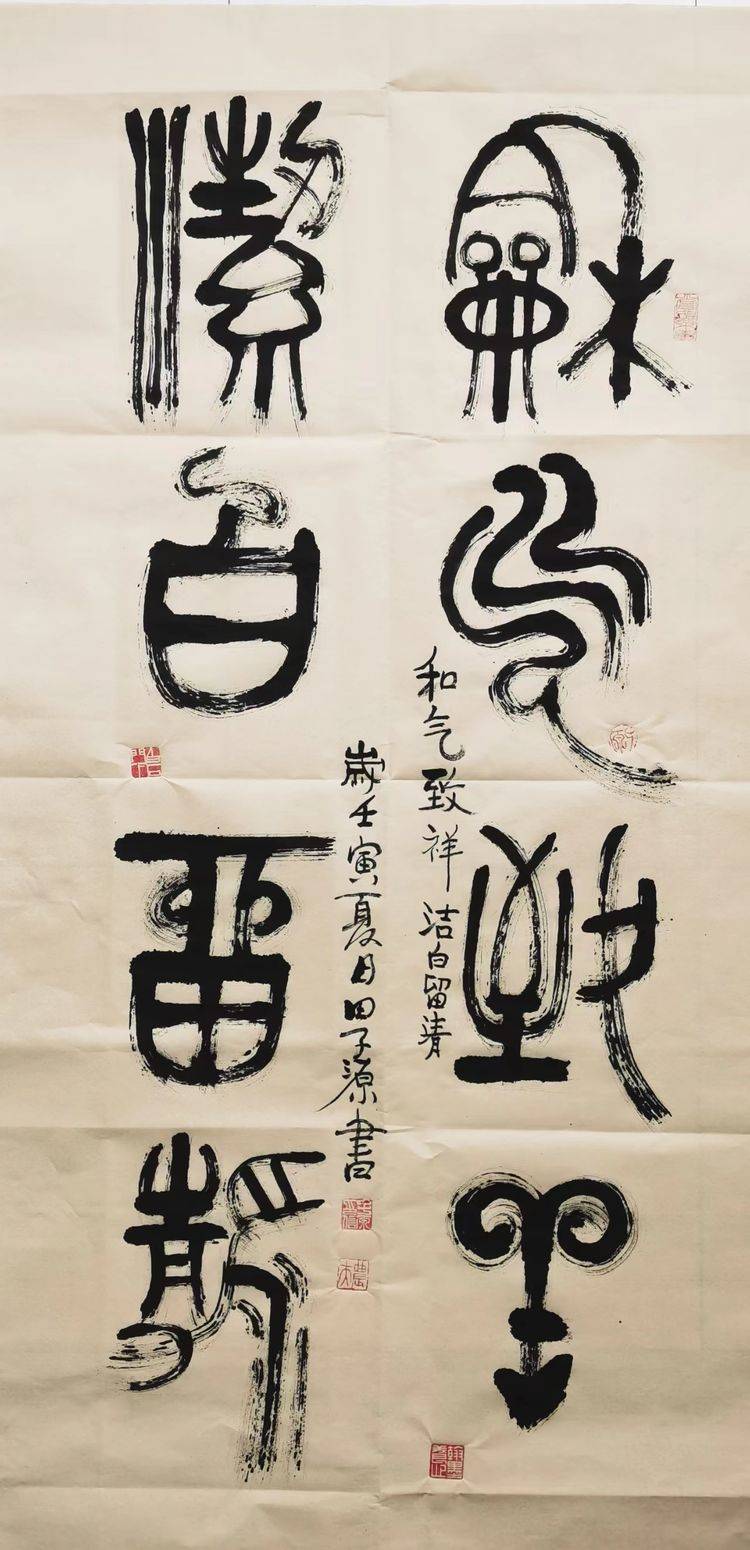 龢气致祥
和气致祥 洁白留清
岁壬寅夏月田子源書
潔白留靜